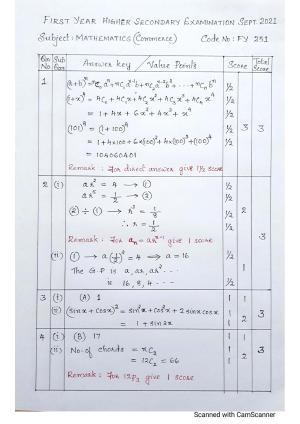 FIRST YEAR HIGHER SECONDARY EXAMINATION SEPT. 2021
Subject: MATHEMATICS (Commerce) Code No: FY 251
Qn No Sub Qn Answer key / Value Points Score Total Score
1 (a+b)ⁿ = nC₀aⁿ + nC₁aⁿ⁻¹b + nC₂aⁿ⁻²b² + ... + nCₙbⁿ ½
(1+x)⁴ = 4C₀ + 4C₁x + 4C₂x² + 4C₃x³ + 4C₄x⁴ ½
= 1 + 4x + 6x² + 4x³ + x⁴ ½
(101)⁴ = (1+100)⁴ ½ 3 3
= 1 + 4×100 + 6×(100)² + 4×(100)³ + (100)⁴ ½
= 104060401 ½
Remark: For direct answer give 1½ score
2 (i) ar² = 4 → (1) ½
ar⁵ = 1/2 → (2) ½
(2) ÷ (1) → r³ = 1/8 ½ 2
∴ r = 1/2 ½
Remark: For aₙ = arⁿ⁻¹ give 1 score 3
(ii) (1) → a(1/2)² = 4 → a = 16 ½
The G P is a, ar, ar² ... 1
= 16, 8, 4 ... ½
3 (i) (A) 1 1 1
(ii) (sinx + cosx)² = sin²x + cos²x + 2 sinx cosx 1 2 3
= 1 + sin2x 1
4 (i) (B) 17 1 1
(ii) No. of chords = nC₂ 1
= 12C₂ = 66 1 2 3
Remark: For 12P₂ give 1 score
Scanned with CamScanner